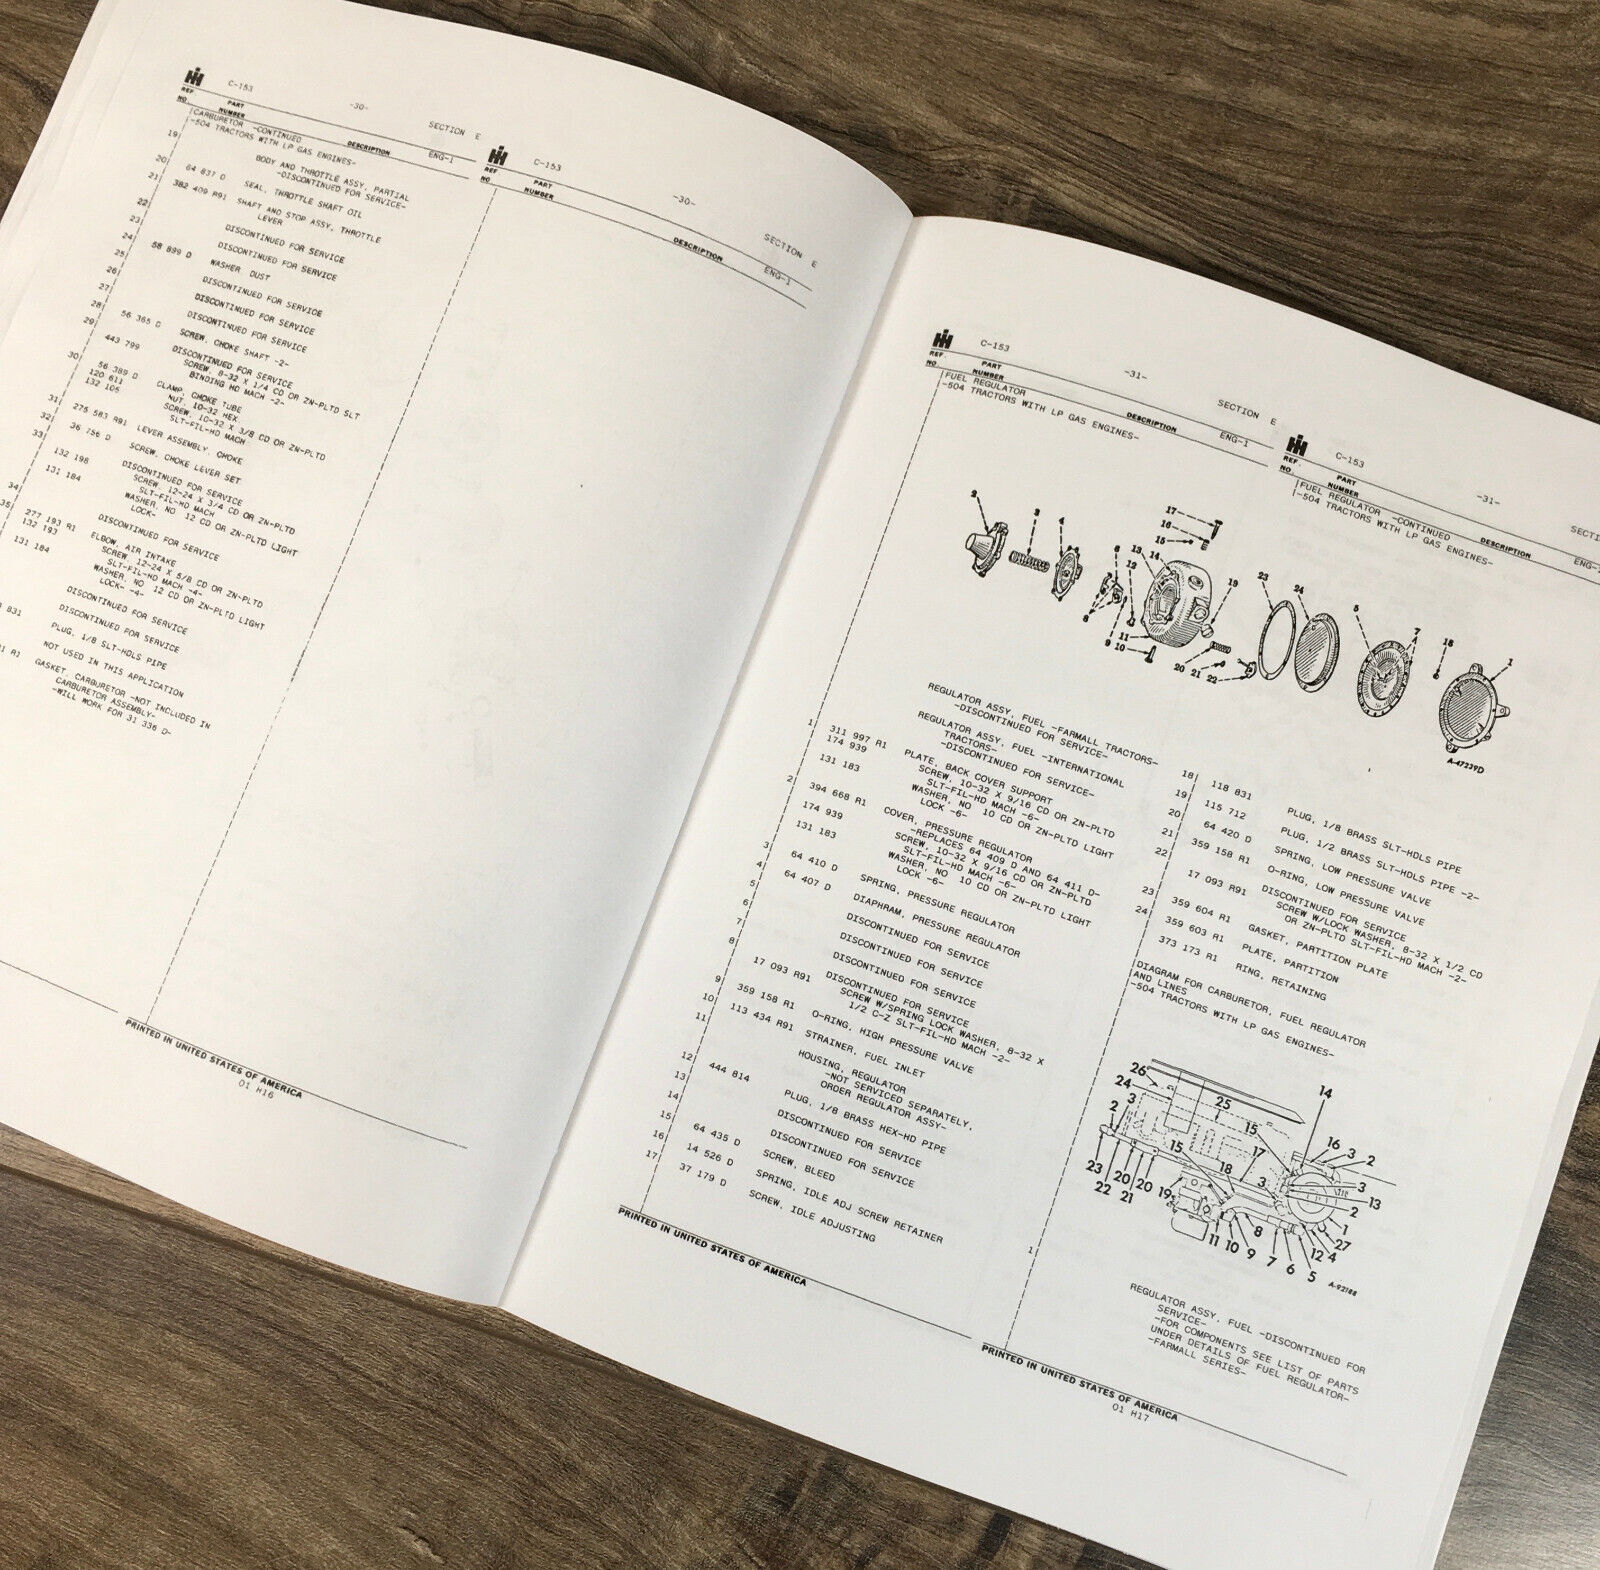 IH C-153 -30- SECTION E
REF NO PART NUMBER DESCRIPTION ENG-1
CARBURETOR -CONTINUED
-504 TRACTORS WITH LP GAS ENGINES-
19 BODY AND THROTTLE ASSY, PARTIAL
-DISCONTINUED FOR SERVICE-
20 64 837 D SEAL, THROTTLE SHAFT OIL
21 382 409 R91 SHAFT AND STOP ASSY, THROTTLE
LEVER
22 DISCONTINUED FOR SERVICE
23 DISCONTINUED FOR SERVICE
24 58 899 D WASHER DUST
25 DISCONTINUED FOR SERVICE
26 DISCONTINUED FOR SERVICE
27 DISCONTINUED FOR SERVICE
28 56 365 D SCREW, CHOKE SHAFT -2-
29 DISCONTINUED FOR SERVICE
443 799 SCREW, 8-32 X 1/4 CD OR ZN-PLTD SLT
BINDING HD MACH -2-
30 56 389 D CLAMP, CHOKE TUBE
120 611 NUT, 10-32 HEX
132 105 SCREW, 10-32 X 3/8 CD OR ZN-PLTD
SLT-FIL-HD MACH
31 275 583 R91 LEVER ASSEMBLY, CHOKE
32 36 756 D SCREW, CHOKE LEVER SET
33 DISCONTINUED FOR SERVICE
132 198 SCREW, 12-24 X 3/4 CD OR ZN-PLTD
SLT-FIL-HD MACH
131 184 WASHER, NO 12 CD OR ZN-PLTD LIGHT
LOCK-
34 DISCONTINUED FOR SERVICE
35 277 193 R1 ELBOW, AIR INTAKE
132 193 SCREW, 12-24 X 5/8 CD OR ZN-PLTD
SLT-FIL-HD MACH -4-
131 184 WASHER, NO 12 CD OR ZN-PLTD LIGHT
LOCK- -4-
DISCONTINUED FOR SERVICE
DISCONTINUED FOR SERVICE
831 PLUG, 1/8 SLT-HDLS PIPE
NOT USED IN THIS APPLICATION
R1 GASKET, CARBURETOR -NOT INCLUDED IN
CARBURETOR ASSEMBLY-
-WILL WORK FOR 31 336 D-
PRINTED IN UNITED STATES OF AMERICA
01 H16
IH C-153 -30- SECTION E
REF NO PART NUMBER DESCRIPTION ENG-1
IH C-153 -31- SECTION E
REF. NO PART NUMBER DESCRIPTION ENG-1
FUEL REGULATOR
-504 TRACTORS WITH LP GAS ENGINES-
2 3 4 6 12 13 14 15 16 17 19 23 24 5 7 18 1
8 9 10 11 20 21 22
A-47239D
REGULATOR ASSY, FUEL -FARMALL TRACTORS-
-DISCONTINUED FOR SERVICE-
REGULATOR ASSY, FUEL -INTERNATIONAL
TRACTORS-
-DISCONTINUED FOR SERVICE-
1 311 997 R1 PLATE, BACK COVER SUPPORT
174 939 SCREW, 10-32 X 9/16 CD OR ZN-PLTD
SLT-FIL-HD MACH -6-
131 183 WASHER, NO 10 CD OR ZN-PLTD LIGHT
LOCK -6-
2 394 668 R1 COVER, PRESSURE REGULATOR
-REPLACES 64 409 D AND 64 411 D-
174 939 SCREW, 10-32 X 9/16 CD OR ZN-PLTD
SLT-FIL-HD MACH -6-
131 183 WASHER, NO 10 CD OR ZN-PLTD LIGHT
LOCK -6-
3 64 410 D SPRING, PRESSURE REGULATOR
4 64 407 D DIAPHRAM, PRESSURE REGULATOR
5 DISCONTINUED FOR SERVICE
6 DISCONTINUED FOR SERVICE
7 DISCONTINUED FOR SERVICE
8 DISCONTINUED FOR SERVICE
17 093 R91 SCREW W/SPRING LOCK WASHER, 8-32 X
1/2 C-Z SLT-FIL-HD MACH -2-
9 359 158 R1 O-RING, HIGH PRESSURE VALVE
10 113 434 R91 STRAINER, FUEL INLET
11 HOUSING, REGULATOR
-NOT SERVICED SEPARATELY,
ORDER REGULATOR ASSY-
12 444 814 PLUG, 1/8 BRASS HEX-HD PIPE
13 DISCONTINUED FOR SERVICE
14 DISCONTINUED FOR SERVICE
15 64 435 D SCREW, BLEED
16 14 526 D SPRING, IDLE ADJ SCREW RETAINER
17 37 179 D SCREW, IDLE ADJUSTING
PRINTED IN UNITED STATES OF AMERICA
IH C-153 -31-
REF. NO. PART NUMBER DESCRIPTION
FUEL REGULATOR -CONTINUED
-504 TRACTORS WITH LP GAS ENGINES-
18 118 831 PLUG, 1/8 BRASS SLT-HDLS PIPE
19 115 712 PLUG, 1/2 BRASS SLT-HDLS PIPE -2-
20 64 420 D SPRING, LOW PRESSURE VALVE
21 359 158 R1 O-RING, LOW PRESSURE VALVE
22 DISCONTINUED FOR SERVICE
17 093 R91 SCREW W/LOCK WASHER, 8-32 X 1/2 CD
OR ZN-PLTD SLT-FIL-HD MACH -2-
23 359 604 R1 GASKET, PARTITION PLATE
24 359 603 R1 PLATE, PARTITION
373 173 R1 RING, RETAINING
DIAGRAM FOR CARBURETOR, FUEL REGULATOR
AND LINES
-504 TRACTORS WITH LP GAS ENGINES-
26 24 3 2 25 15 14 16 3 2
15 18 17 3 3 13 2
23 22 20 21 20 19 11 10 9 8 7 6 5 12 4 27 1
A-92188
1 REGULATOR ASSY, FUEL -DISCONTINUED FOR
SERVICE-
-FOR COMPONENTS SEE LIST OF PARTS
UNDER DETAILS OF FUEL REGULATOR-
-FARMALL SERIES-
PRINTED IN UNITED STATES OF AMERICA
01 H17